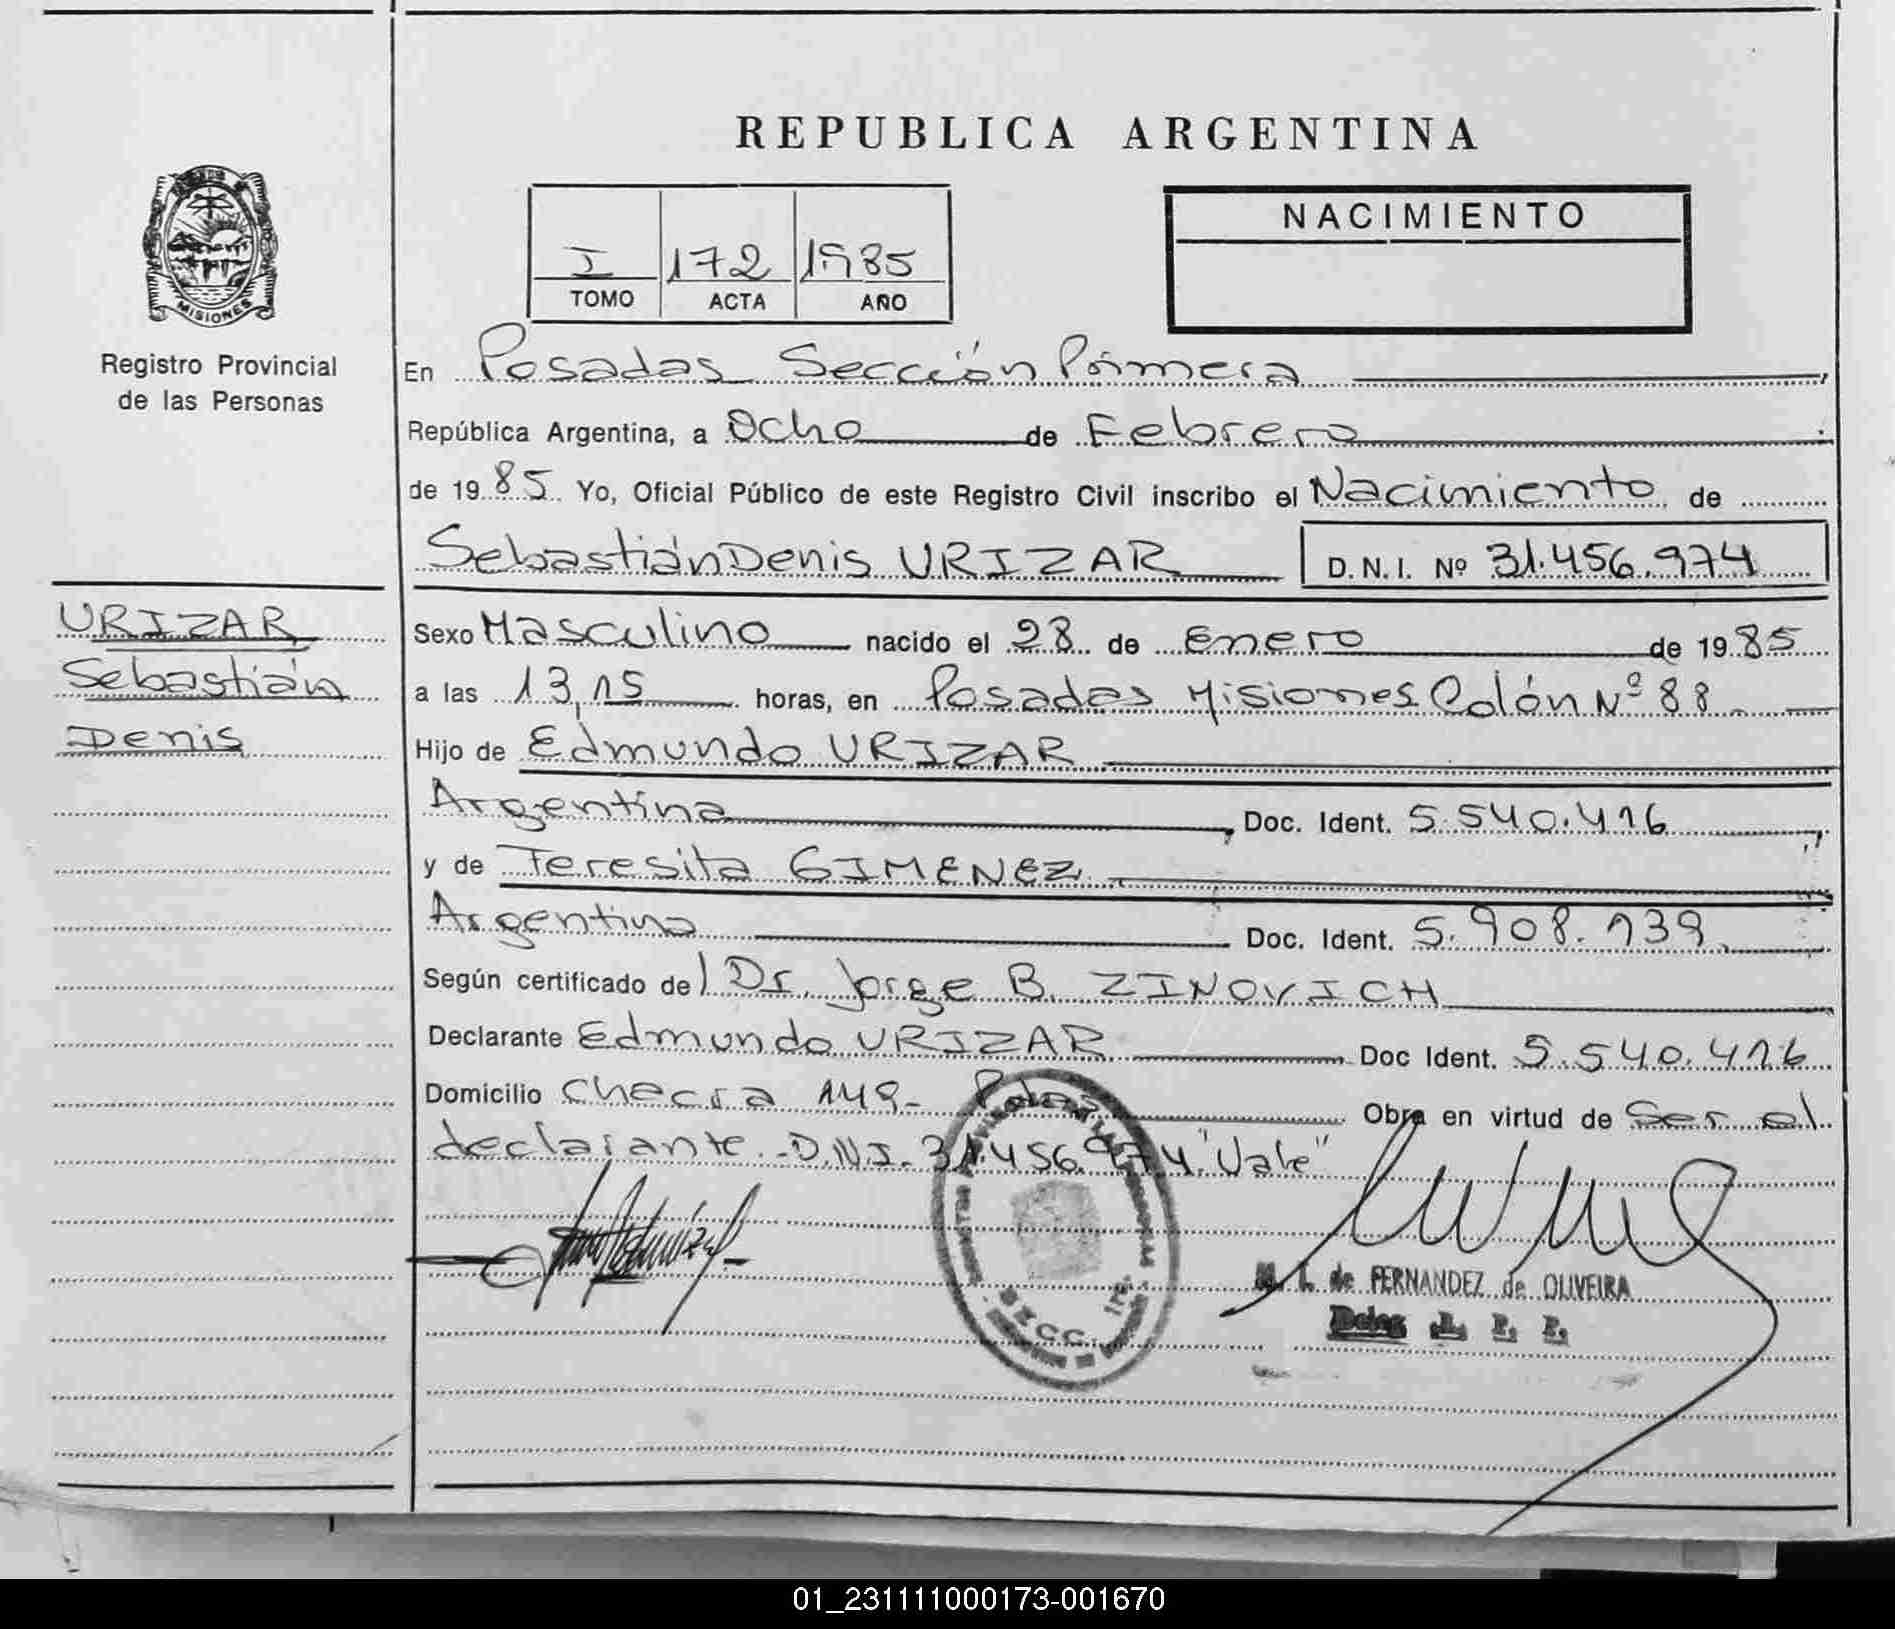 REPUBLICA ARGENTINA
NACIMIENTO
I 172 1985
TOMO ACTA AÑO
MISIONES
Registro Provincial
de las Personas
En Posadas Sección Primera
República Argentina, a Ocho de Febrero
de 1985 Yo, Oficial Público de este Registro Civil inscribo el Nacimiento de
Sebastián Denis URIZAR D.N.I. Nº 31.456.974
URIZAR
Sebastián
Denis
Sexo Masculino nacido el 28 de Enero de 1985
a las 13,15 horas, en Posadas Misiones Colón Nº 88
Hijo de Edmundo URIZAR
Argentina, Doc. Ident. 5.540.416
y de Teresita GIMENEZ
Argentina Doc. Ident. 5.908.139
Según certificado del Dr. Jorge B. ZINOVICH
Declarante Edmundo URIZAR Doc Ident. 5.540.416
Domicilio Checra 149- Pdas Obra en virtud de Ser el
declarante.-D.N.I. 31.456.974."Vale"
M. I. de FERNANDEZ de OLIVEIRA
Deleg. R. P. P.
01_231111000173-001670